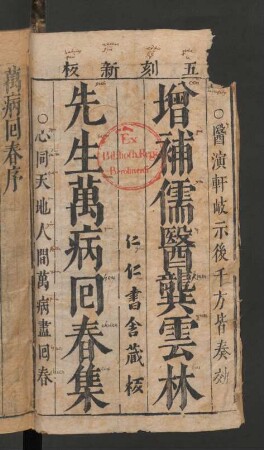 五刻新板
○醫演軒岐示後千方皆奏效
增補儒醫龔雲林
仁仁書舍藏板
先生萬病回春集
○心同天地人間萬病盡回春
萬病回春序
Ex
Biblioth. Regia
Berolinensi